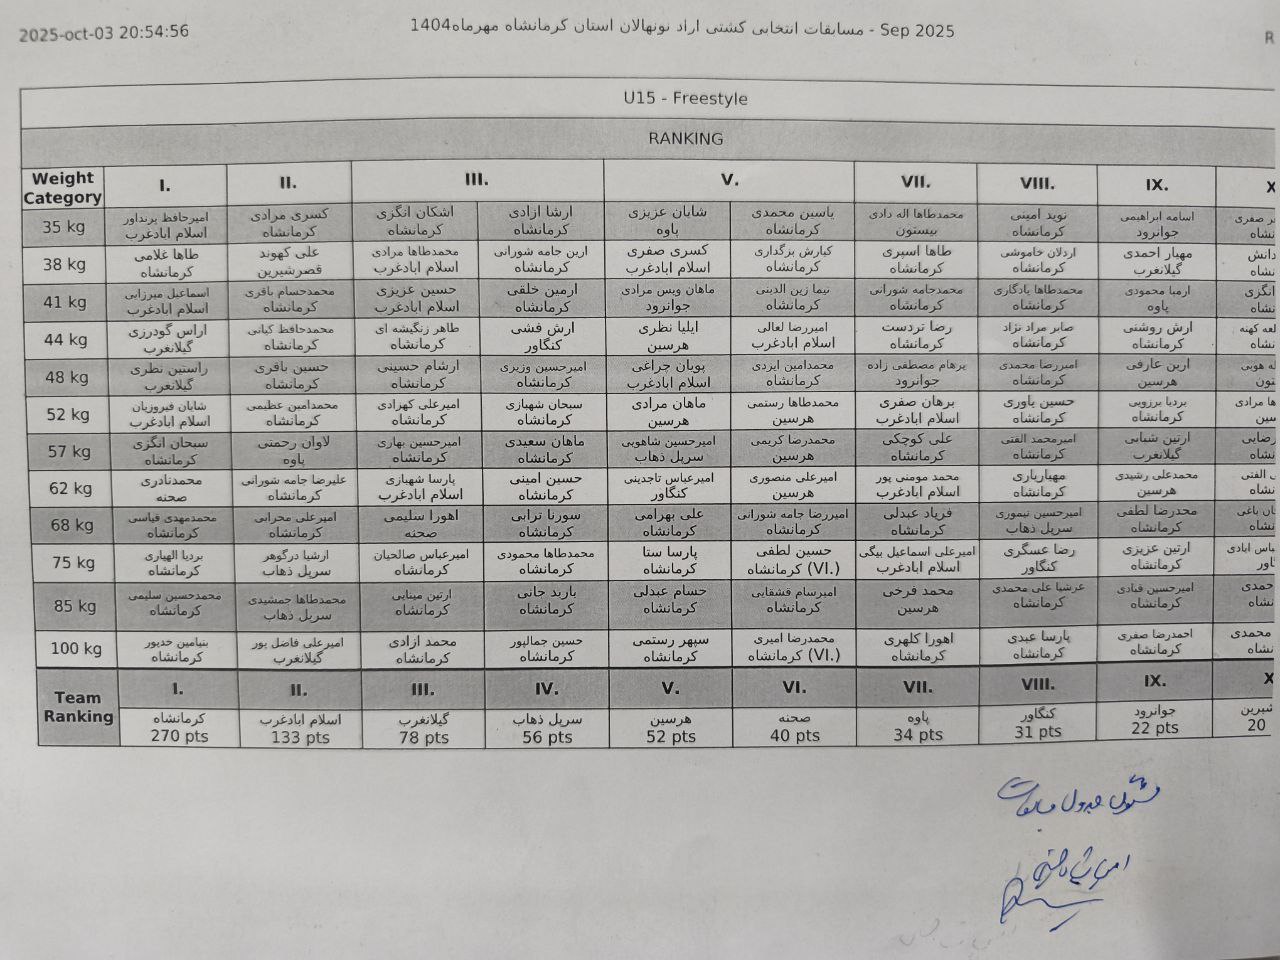 2025-oct-03 20:54:56
مسابقات انتخابی کشتی اراد نونهالان استان کرمانشاه مهرماه1404 - Sep 2025
R
U15 - Freestyle
RANKING
Weight Category I. II. III. V. VII. VIII. IX. X
35 kg
امیرحافظ برنداور کسری مرادی اشکان انگزی ارشا ازادی شایان عزیزی یاسین محمدی محمدطاها اله دادی نوید امینی اسامه ابراهیمی صفری
اسلام ابادغرب کرمانشاه کرمانشاه کرمانشاه پاوه کرمانشاه بیستون کرمانشاه جوانرود
38 kg
طاها غلامی علی کهوند محمدطاها مرادی ارین جامه شورانی کسری صفری کیارش بزگداری طاها اسپری اردلان خاموشی مهیار احمدی دانش
کرمانشاه قصرشیرین اسلام ابادغرب کرمانشاه اسلام ابادغرب کرمانشاه کرمانشاه کرمانشاه گیلانغرب
41 kg
اسماعیل میرزایی محمدحسام باقری حسین عزیزی ارمین خلقی ماهان ویس مرادی نیما زین الدینی محمدجامه شورانی محمدطاها یادگاری ارمیا محمودی انگزی
اسلام ابادغرب کرمانشاه اسلام ابادغرب کرمانشاه جوانرود کرمانشاه کرمانشاه کرمانشاه پاوه
44 kg
اراس گودرزی محمدحافظ کیانی طاهر زنگیشه ای ارش فشی ایلیا نظری امیررضا لعالی رضا تردست صابر مراد نژاد ارش روشنی کهنه
گیلانغرب کرمانشاه کرمانشاه کنگاور هرسین اسلام ابادغرب کرمانشاه کرمانشاه کرمانشاه
48 kg
راستین نظری حسین باقری ارشام حسینی امیرحسین وزیری پویان چراغی محمدامین ایزدی پرهام مصطفی زاده امیررضا محمدی ارین عارفی
گیلانغرب کرمانشاه کرمانشاه کرمانشاه اسلام ابادغرب کرمانشاه جوانرود کرمانشاه هرسین
52 kg
شایان فیروزیان محمدامین عظیمی امیرعلی کهزادی سبحان شهبازی ماهان مرادی محمدطاها رستمی برهان صفری حسین یاوری بردیا برزویی مرادی
اسلام ابادغرب کرمانشاه کرمانشاه کرمانشاه هرسین هرسین اسلام ابادغرب کرمانشاه کرمانشاه
57 kg
سبحان انگزی لاوان رحمتی امیرحسین بهاری ماهان سعیدی امیرحسین شاهویی محمدرضا کریمی علی کوچکی امیرمحمد الفتی ارتین شبابی
کرمانشاه پاوه کرمانشاه کرمانشاه سرپل ذهاب هرسین کرمانشاه کرمانشاه گیلانغرب
62 kg
محمدنادری علیرضا جامه شورانی پارسا شهبازی حسین امینی امیرعباس تاجدینی امیرعلی منصوری محمد مومنی پور مهیاریاری محمدعلی رشیدی الفتی
صحنه کرمانشاه اسلام ابادغرب کرمانشاه کنگاور هرسین اسلام ابادغرب کرمانشاه هرسین
68 kg
محمدمهدی قیاسی امیرعلی محرابی اهورا سلیمی سورنا ترابی علی بهرامی امیررضا جامه شورانی فریاد عبدلی امیرحسین تیموری محدرضا لطفی باغی
کرمانشاه کرمانشاه صحنه کرمانشاه کرمانشاه کرمانشاه کرمانشاه سرپل ذهاب کرمانشاه
75 kg
بردیا الهیاری ارشیا درگوهر امیرعباس صالحیان محمدطاها محمودی پارسا ستا حسین لطفی امیرعلی اسماعیل بیگی رضا عسگری ارتین عزیزی ابادی
کرمانشاه سرپل ذهاب کرمانشاه کرمانشاه کرمانشاه کرمانشاه (VI.) اسلام ابادغرب کنگاور کرمانشاه
85 kg
محمدحسین سلیمی محمدطاها جمشیدی ارتین مینایی باربد جانی حسام عبدلی امیرسام قشقایی محمد فرخی عرشیا علی محمدی امیرحسین قبادی
کرمانشاه سرپل ذهاب کرمانشاه کرمانشاه کرمانشاه کرمانشاه هرسین کرمانشاه کرمانشاه
100 kg
بنیامین خدیور امیرعلی فاضل پور محمد ازادی حسین جمالپور سپهر رستمی محمدرضا امیری اهورا کلهری پارسا عبدی احمدرضا صفری محمدی
کرمانشاه گیلانغرب کرمانشاه کرمانشاه کرمانشاه کرمانشاه (VI.) کرمانشاه کرمانشاه کرمانشاه
Team Ranking I. II. III. IV. V. VI. VII. VIII. IX. X
کرمانشاه اسلام ابادغرب گیلانغرب سرپل ذهاب هرسین صحنه پاوه کنگاور جوانرود شیرین
270 pts 133 pts 78 pts 56 pts 52 pts 40 pts 34 pts 31 pts 22 pts 20
مسئول جدول مسابقات